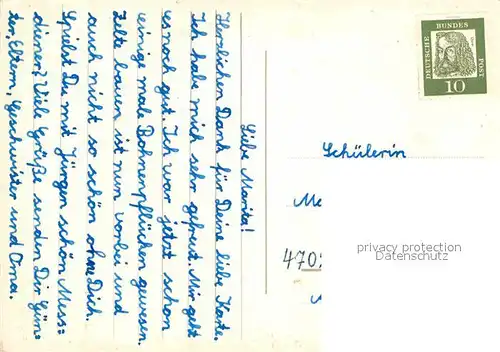 Liebe Marita!
Herzlichen Dank für Deine liebe Karte.
Ich habe mich sehr gefreut. Mir geht
es noch gut. Ich war jetzt schon
einige male Bohnenpflücken gewesen.
Zelte bauen ist nun vorbei und
auch nicht so schön ohne Dich.
Spielst Du mit Jürgen schön Mess=
diener? Viele Grüße senden Dir Gün=
ter, Eltern, Geschwister und Oma.
DEUTSCHE
BUNDES
POST
10
Schülerin
470
privacy protection
Datenschutz